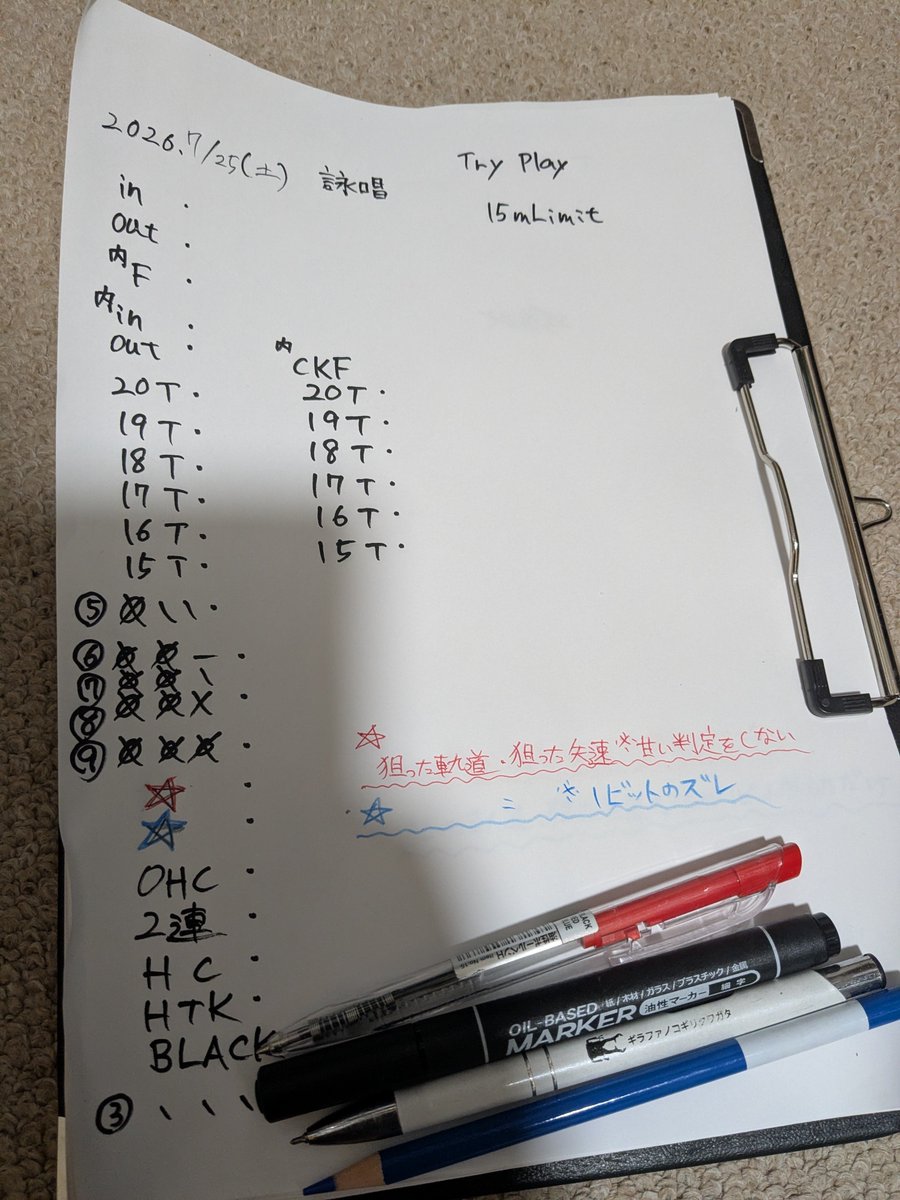 2026.7/25(土) 詠唱
Try Play
15mLimit
in ・
out ・
内F ・
内in ・
out ・
20T・
19T・
18T・
17T・
16T・
15T・
内CKF
20T・
19T・
18T・
17T・
16T・
15T・
⑤ ☆ \ \ ・
⑥ ☆ ☆ ー ・
⑦ ☆ ☆ \
⑧ ☆ ☆ X ・
⑨ ☆ ☆ ☆ ・
☆ ・
☆ ・
OHC ・
2連 ・
HC ・
HTK ・
BLACK
③ 、 、 、
☆
狙った軌道・狙った矢速 ※甘い判定をしない
☆ 〃 ※1ビットのズレ
油性ボールペン
OIL-BASED
MARKER
紙/木材/ガラス/プラスチック/金属
油性マーカー 細字
ギラファノコギリクワガタ